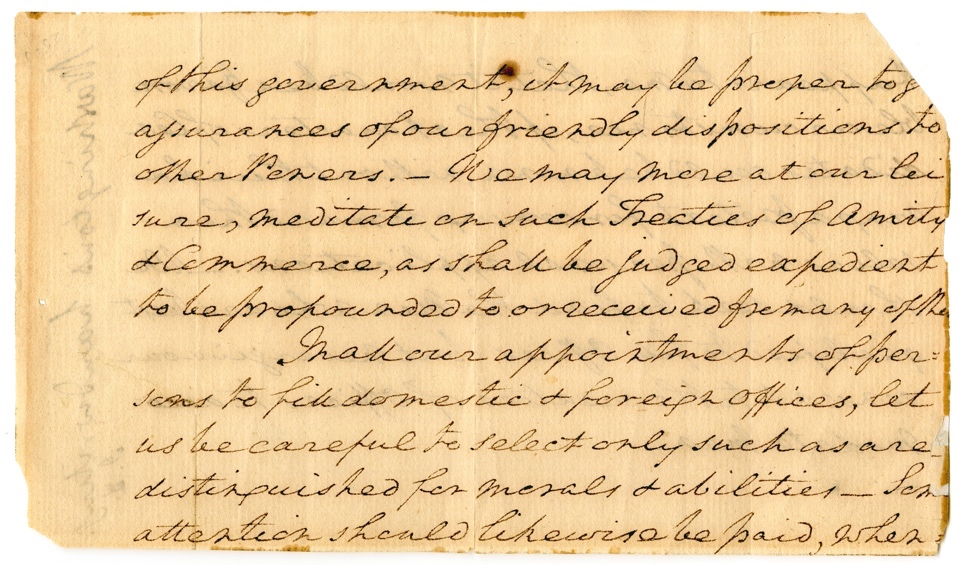 of this government, it may be proper to g
assurances of our friendly dispositions to
other Powers. — We may more at our lei
sure, meditate on such Treaties of Amity
& Commerce, as shall be judged expedient
to be propounded to or received from any of the
In all our appointments of per=
sons to fill domestic & foreign offices, let
us be careful to select only such as are
distinguished for morals & abilities — Som
attention should likewise be paid, when=